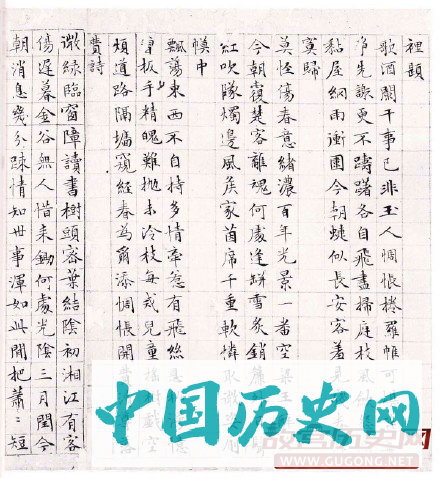 裡題
歌酒闌干事已非玉人惆悵捲羅帷可
爭先誤更不躊躇各自飛盡掃庭枝風
黏屋網雨漸團今朝蜨似長安客羞見
寞歸
莫怪傷春意緒濃百年光景一番空梁王
今朝 楚客離魂何處逢 雪炙銷簾
紅吹隊燭邊風矦家茵席千重軟憐
幙中
飄蕩東西不自持多情牽惹有飛絲
板手精魄難拋未冷枝每戒兒童搖樹戲空
煩道路隔墻窺經春為爾添惆悵開
費詩
綠臨窗障讀書樹頭容葉結陰初湘江有客
傷遲暮金谷無人惜未鋤何處光陰三月閏今
朝消息幾分疎情知世事渾如此閒把蕭〻短
中国历史网
WWW.GUCONG.NET